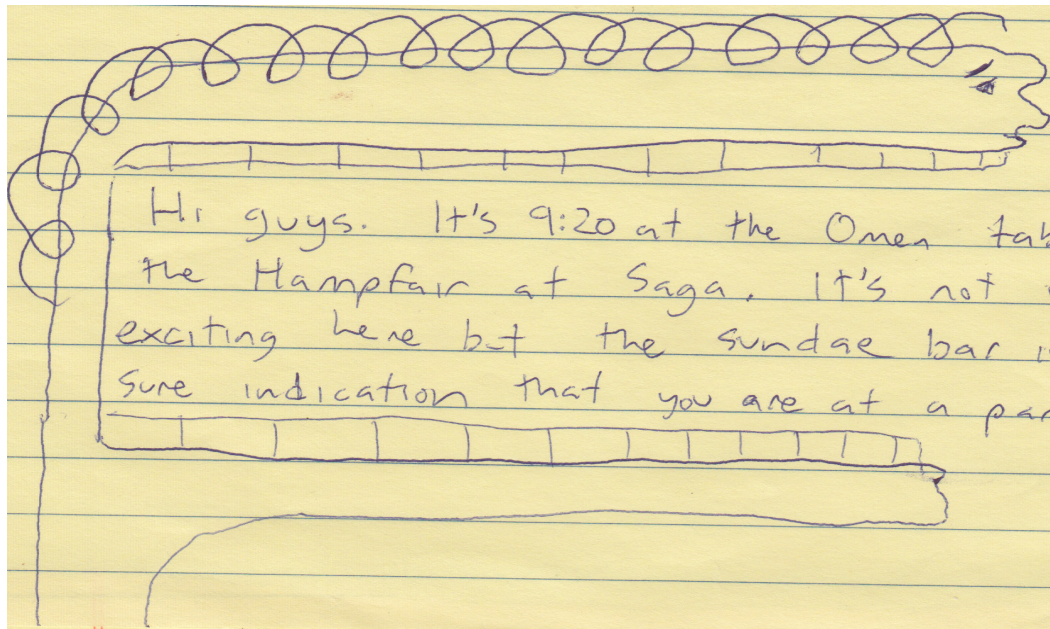 Hi guys. It's 9:20 at the Omen
the Hampfair at Saga. It's not
exciting here but the sundae bar
sure indication that you are at a